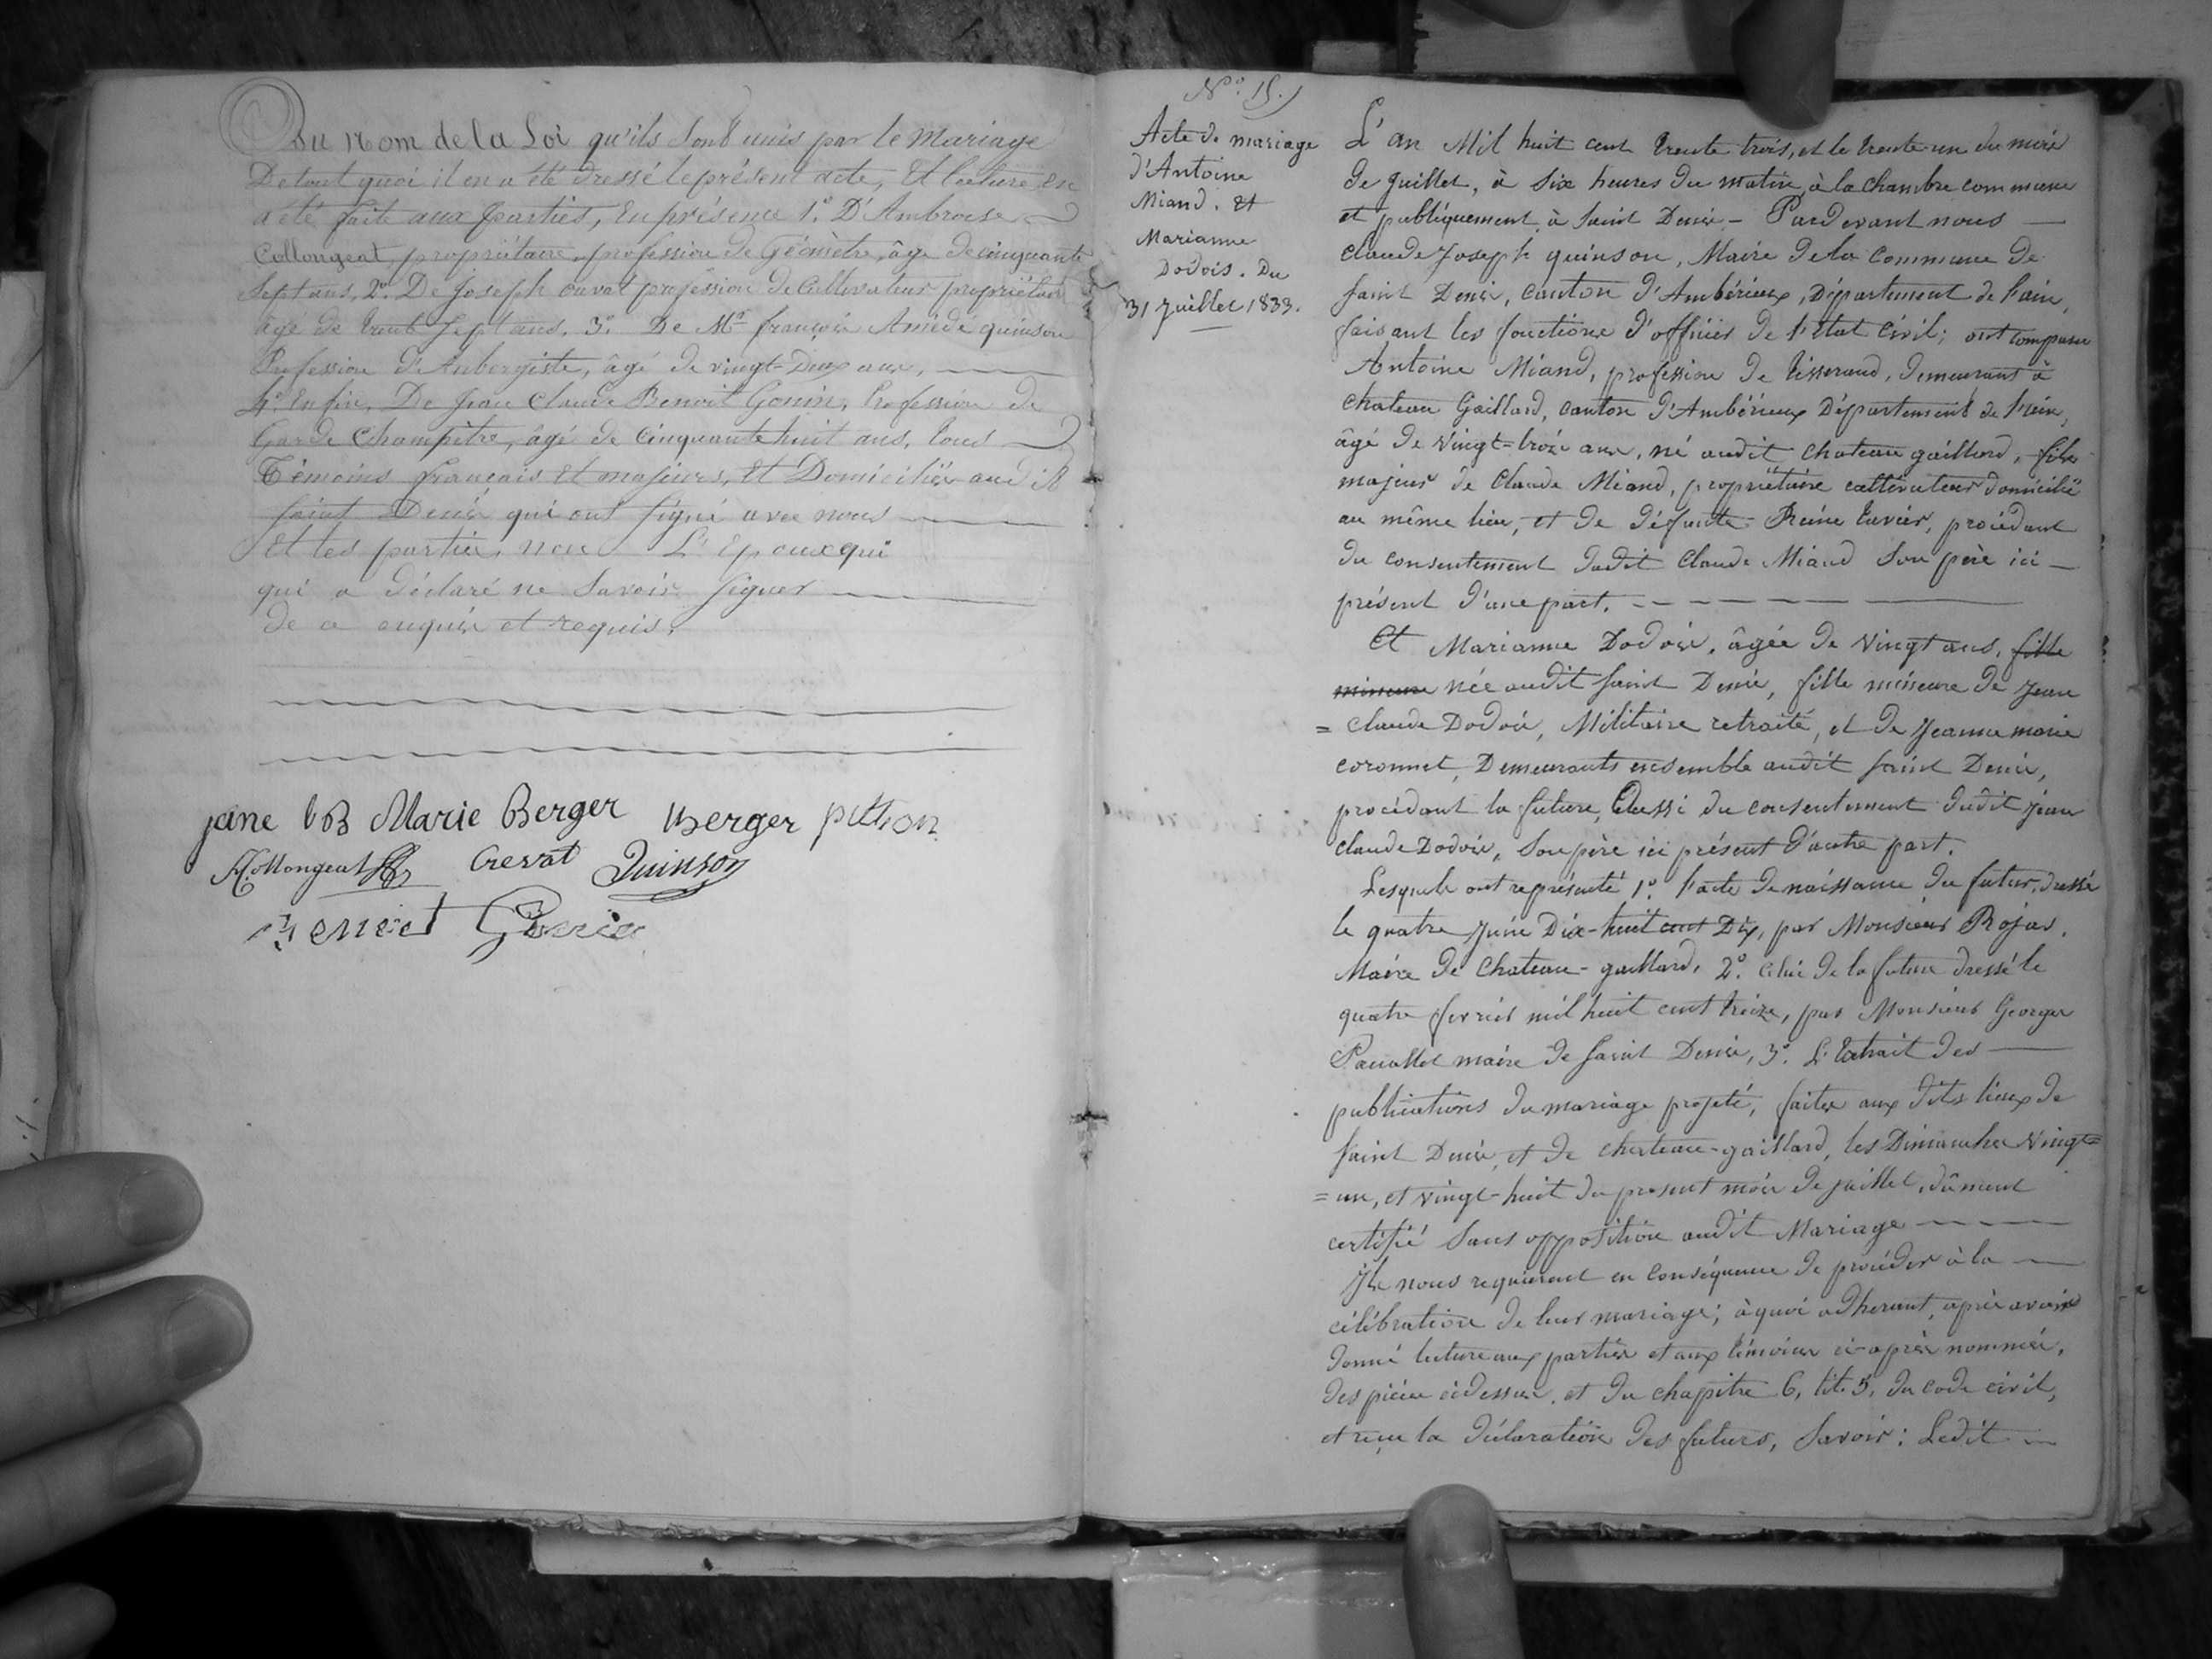 Au Nom de la Loi qu'ils sont unis par le mariage
De tout quoi il en a été dressé le présent acte, Et lecture en
a été faite aux parties, En présence 1.° D'Ambroise
Collongeat, propriétaire, profession de Géomètre, âgé de cinquante
Sept ans, 2.° De Joseph Cuvat profession de Cultivateur propriétaire
âgé de trente Sept ans. 3.° De Mr. françois Amédé quinson
Profession d'Aubergiste, âgé de vingt-Deux ans,
4.° Enfin, De Jean Claude Benoit Gonin, Profession de
Garde Champêtre, âgé de Cinquante huit ans, tous
Témoins français Et majeurs, Et Domiciliés audit
Saint Denis qui ont signé avec nous
Et les parties, non L'Epouxqui
qui a déclaré ne Savoir signer
de ce enquis et requis.
jane Marie Berger Berger pition
Collongeat Crevat Quinson
Benoit Gonin
N.° 15.
Acte de mariage
d'Antoine
Miand. Et
Marianne
Dodois. Du
31 Juillet 1833.
L'an Mil huit cent trente trois, et le trente-un du mois
de Juillet, à Six heures du matin, à la chambre commune
et publiquement, à Saint Denis - Pardevant nous
Claude Joseph quinson, Maire de la Commune de
Saint Denis, canton d'Ambérieux, Département de l'ain,
faisant les fonctions d'officier de l'Etat Civil; ont comparu
Antoine Miand, profession de tisserand, demeurant à
Chateau Gaillard, canton d'Ambérieux Département de l'ain,
âgé de vingt-trois ans, né audit chateau gaillard, fils
majeur de Claude Miand, propriétaire cultivateur domicilié
au même lieu, et de défunte Reine Cuvier, procédant
du consentement dudit Claude Miand Son père ici -
présent d'une part.
Et Marianne Dodois, âgée de vingt ans, fille
mineure née audit Saint Denis, fille mineure de Jean
= Claude Dodois, Militaire retraité, et de Jeanne marie
coronnet, Demeurants ensemble audit Saint Denis,
procédant la future, Aussi du consentement dudit Jean
Claude Dodois, Son père ici présent d'autre part.
Lesquels ont représenté 1.° l'acte de naissance du futur, dressé
le quatre Juin Dix-huit cent Dix, par Monsieur Rojas,
Maire de Chateau-gaillard, 2.° celui de la future dressé le
quatre fevrier mil huit cent treize, par Monsieur George
maire de Saint Denis, 3.° L'Extrait des
publications du mariage projeté, faites aux dits lieux de
Saint Denis, et de chateau-gaillard, les Dimanches Vingt=
= un, et vingt-huit du présent mois de juillet, dûment
certifié Sans opposition audit Mariage
Ils nous requierent en conséquence de procéder à la
célébration de leur mariage; à quoi adherant, après avoir
donné lecture aux parties et aux témoins ci-après nommés,
des pièces cidessus, et du chapitre 6, tit. 5, du code civil,
et reçu la déclaration des futurs, Savoir: Ledit